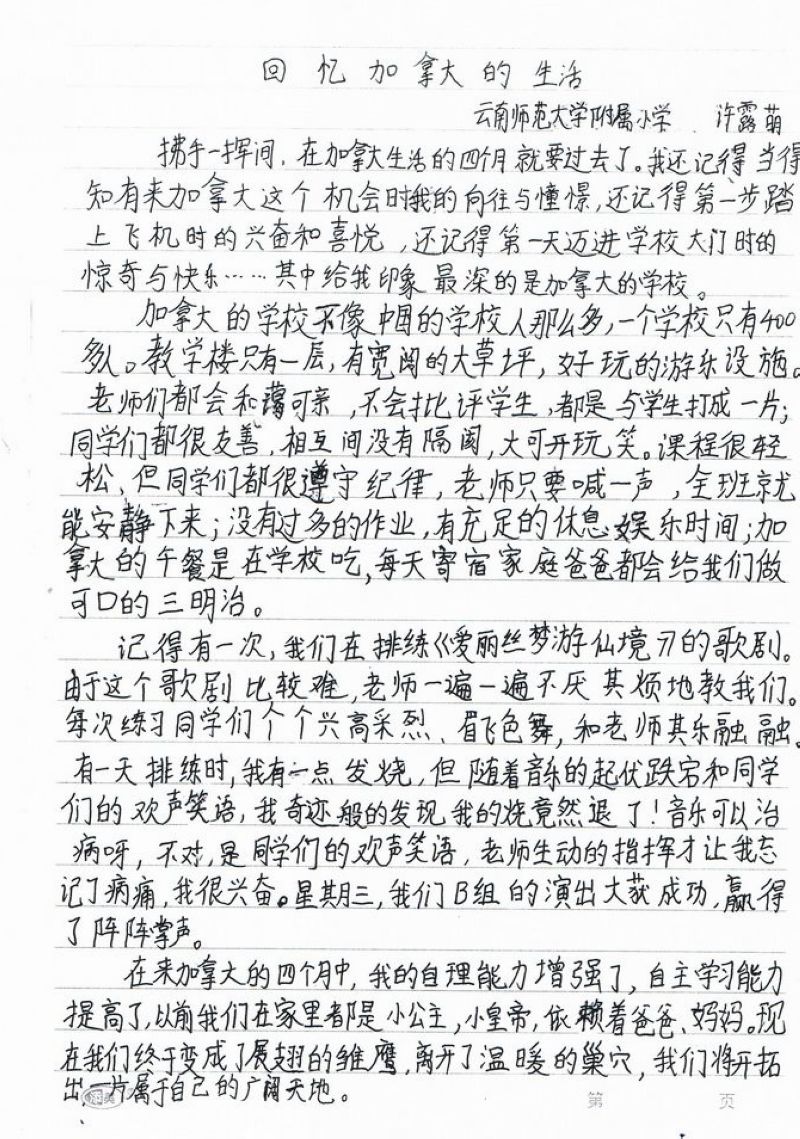 回忆加拿大的生活
云南师范大学附属小学 许露萌
拂手一挥间，在加拿大生活的四个月就要过去了。我还记得当得
知有来加拿大这个机会时我的向往与憧憬，还记得第一步踏
上飞机时的兴奋和喜悦，还记得第一天迈进学校大门时的
惊奇与快乐……其中给我印象最深的是加拿大的学校。
加拿大的学校不像中国的学校人那么多，一个学校只有400
多人。教学楼只有一层，有宽阔的大草坪，好玩的游乐设施。
老师们都会和蔼可亲，不会批评学生，都是与学生打成一片；
同学们都很友善，相互间没有隔阂，大可开玩笑。课程很轻
松、但同学们都很遵守纪律，老师只要喊一声，全班就
能安静下来；没有过多的作业，有充足的休息娱乐时间；加
拿大的午餐是在学校吃，每天寄宿家庭爸爸都会给我们做
可口的三明治。
记得有一次，我们在排练《爱丽丝梦游仙境》的歌剧。
由于这个歌剧比较难，老师一遍一遍不厌其烦地教我们。
每次练习同学们个个兴高采烈、眉飞色舞，和老师其乐融融。
有一天排练时，我有一点发烧，但随着音乐的起伏跌宕和同学
们的欢声笑语，我奇迹般的发现我的烧竟然退了！音乐可以治
病呀，不对，是同学们的欢声笑语，老师生动的指挥才让我忘
记了病痛，我很兴奋。星期三，我们B组的演出大获成功，赢得
了阵阵掌声。
在来加拿大的四个月中，我的自理能力增强了，自主学习能力
提高了，以前我们在家里都是小公主，小皇帝，依赖着爸爸、妈妈。现
在我们终于变成了展翅的雏鹰，离开了温暖的巢穴，我们将开拓
出一片属于自己的广阔天地。
第 页